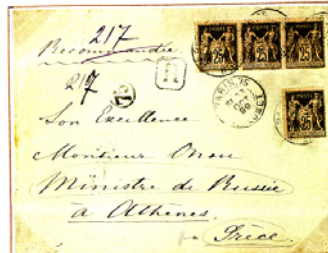 217
Recommandée
217
R
PARIS
25
25
25
25
Son Excellence
Monsieur Onou
Ministre de Russie
à Athènes.
Grèce.